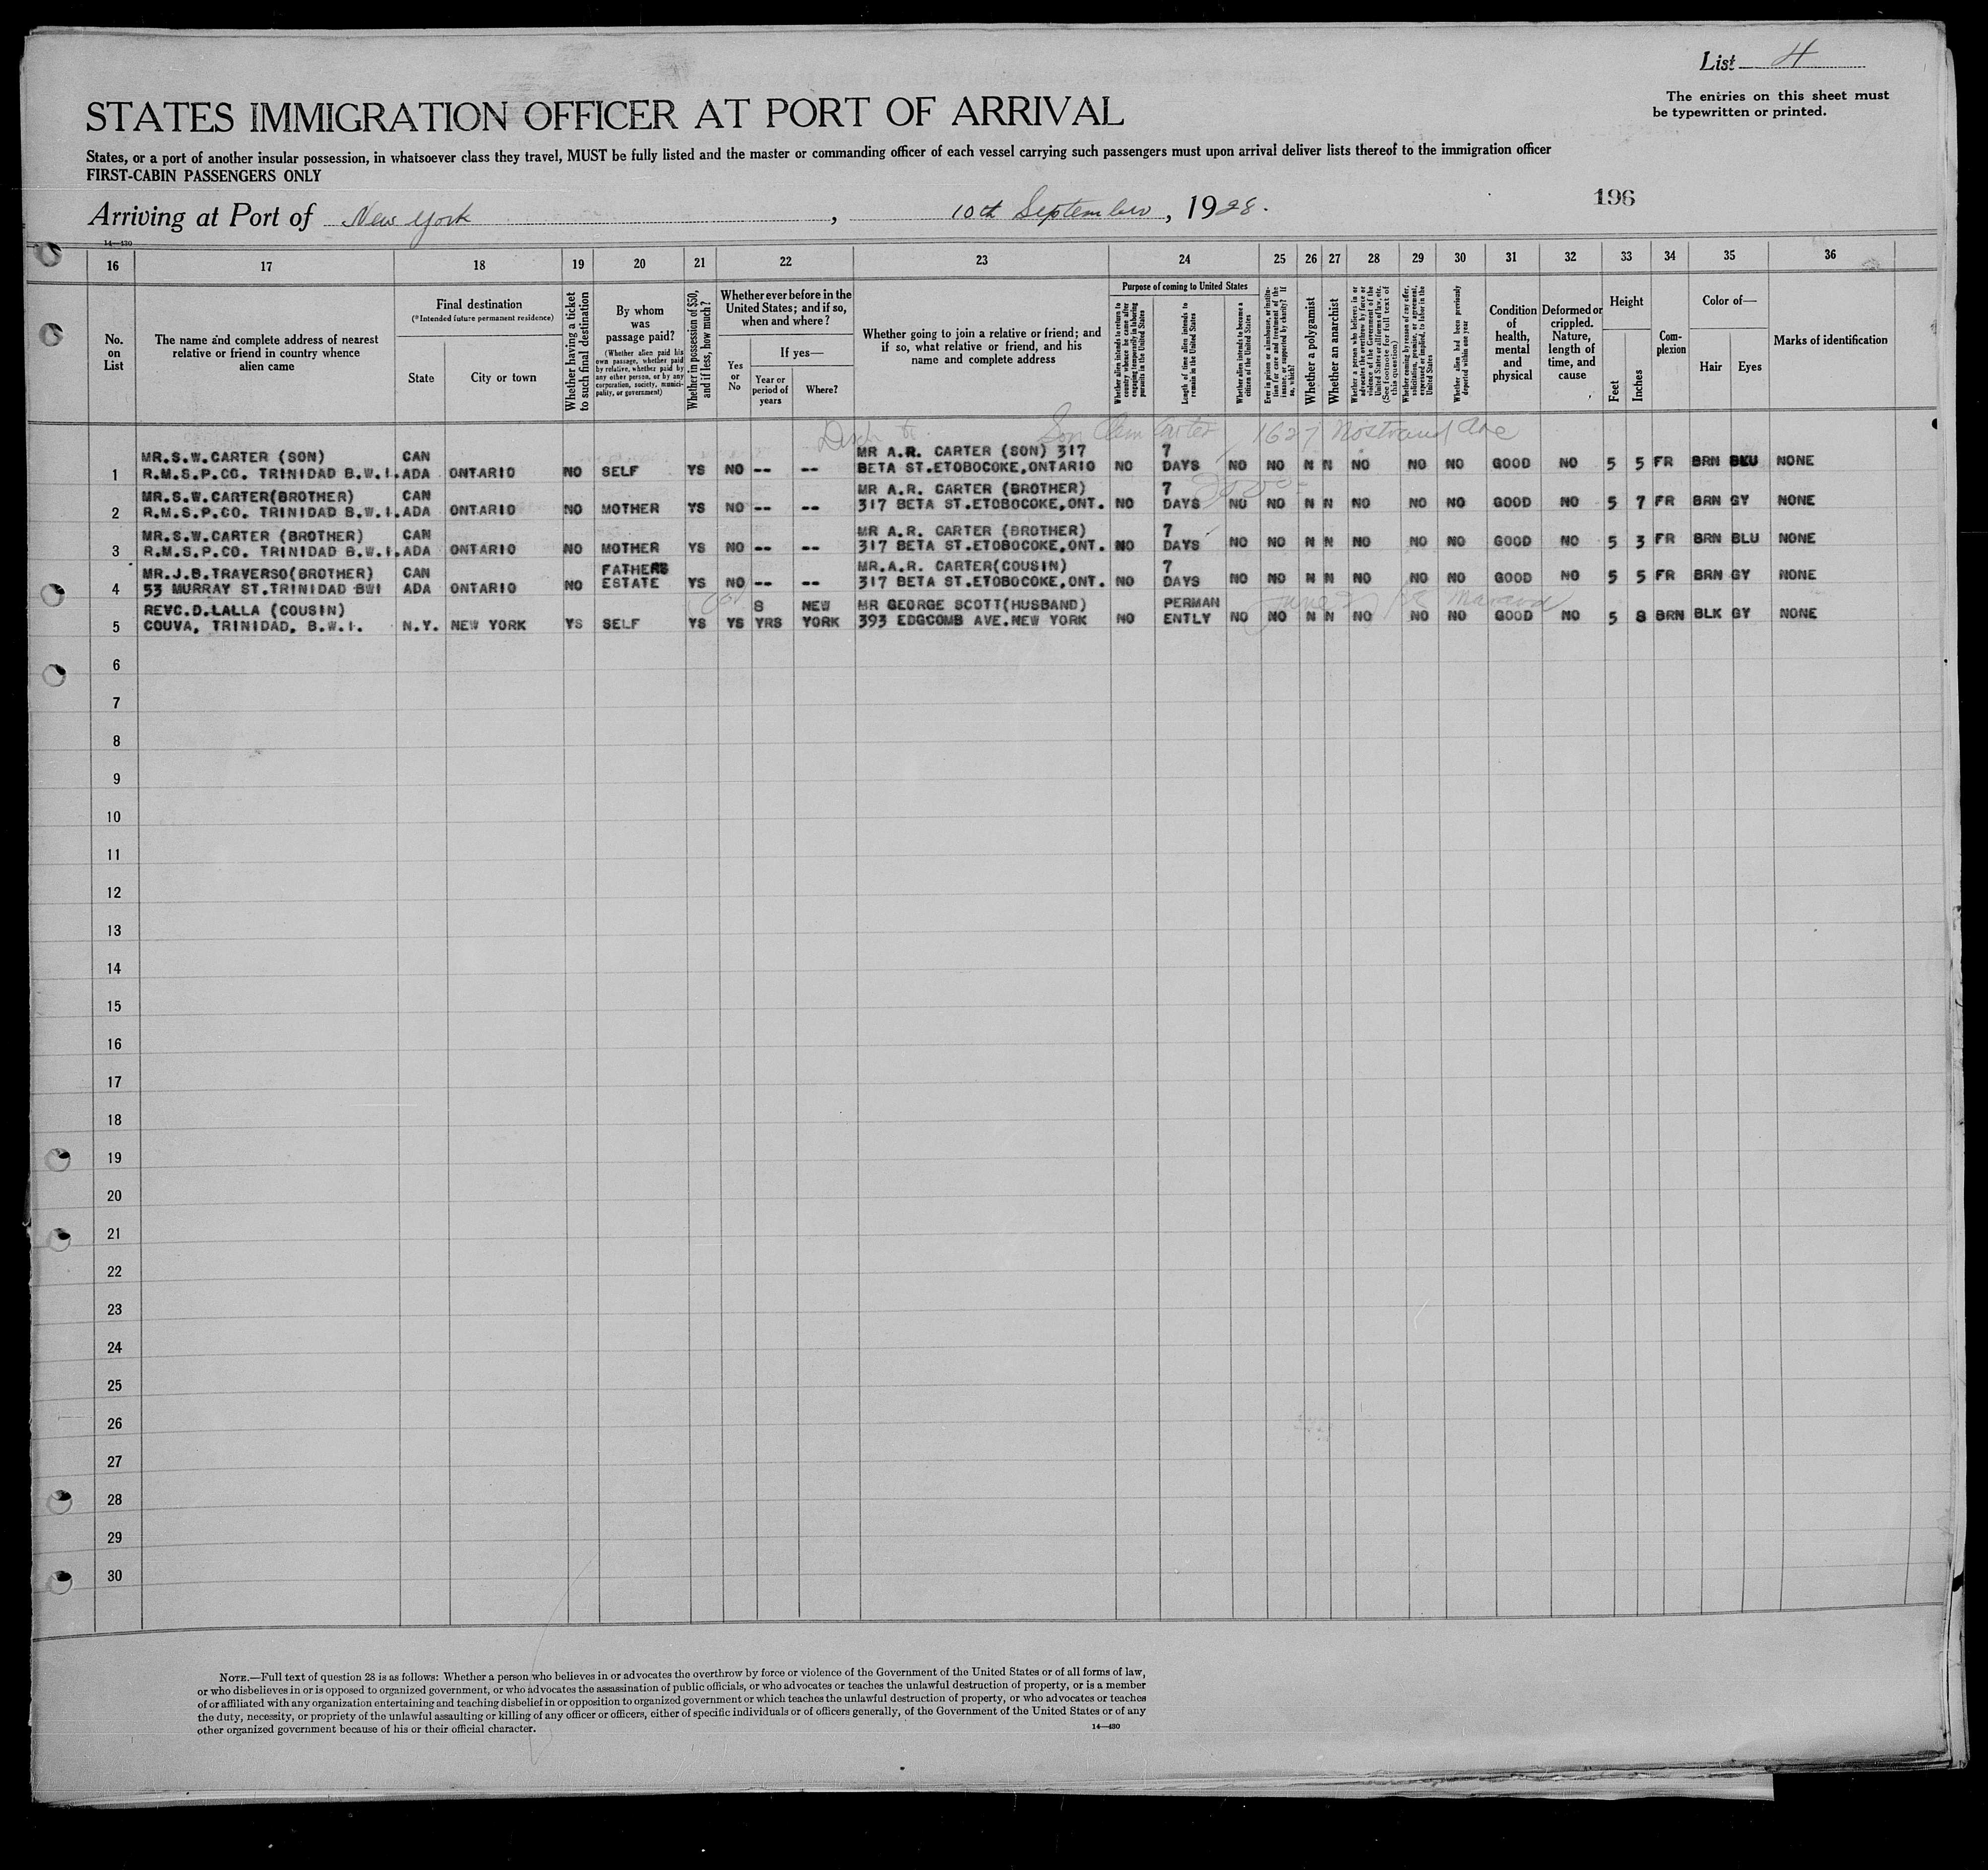 List 4
The entries on this sheet must
be typewritten or printed.
STATES IMMIGRATION OFFICER AT PORT OF ARRIVAL
States, or a port of another insular possession, in whatsoever class they travel, MUST be fully listed and the master or commanding officer of each vessel carrying such passengers must upon arrival deliver lists thereof to the immigration officer
FIRST-CABIN PASSENGERS ONLY
196
Arriving at Port of New York, 10th September, 1928.
14—430
16 17 18 19 20 21 22 23 24 25 26 27 28 29 30 31 32 33 34 35 36
No. on List
The name and complete address of nearest relative or friend in country whence alien came
Final destination
(*Intended future permanent residence)
State
City or town
Whether having a ticket to such final destination
By whom was passage paid?
(Whether alien paid his own passage, whether paid by relative, whether paid by any other person, or by any corporation, society, municipality, or government)
Whether in possession of $50, and if less, how much?
Whether ever before in the United States; and if so, when and where?
Yes or No
If yes—
Year or period of years
Where?
Whether going to join a relative or friend; and if so, what relative or friend, and his name and complete address
Purpose of coming to United States
Whether alien intends to return to country whence he came after engaging temporarily in laboring pursuits in the United States
Length of time alien intends to remain in the United States
Whether alien intends to become a citizen of the United States
Ever in prison or almshouse, or institution for care and treatment of the insane, or supported by charity? If so, which?
Whether a polygamist
Whether an anarchist
Whether a person who believes in or advocates the overthrow by force or violence of the Government of the United States or all forms of law, etc. (See footnote for full text of this question)
Whether coming by reason of any offer, solicitation, promise, or agreement, expressed or implied, to labor in the United States
Whether alien had been previously deported within one year
Condition of health, mental and physical
Deformed or crippled. Nature, length of time, and cause
Height
Feet
Inches
Complexion
Color of—
Hair
Eyes
Marks of identification
Son Clem Carter 1627 Nostrand Ave
MR.S.W.CARTER (SON) CAN MR A.R. CARTER (SON) 317 7
1 R.M.S.P.CO. TRINIDAD B.W.I. ADA ONTARIO NO SELF YS NO -- -- BETA ST.ETOBOCOKE,ONTARIO NO DAYS NO NO N N NO NO NO GOOD NO 5 5 FR BRN BLU NONE
MR.S.W.CARTER(BROTHER) CAN MR A.R. CARTER (BROTHER) 7
2 R.M.S.P.CO. TRINIDAD B.W.I. ADA ONTARIO NO MOTHER YS NO -- -- 317 BETA ST.ETOBOCOKE,ONT. NO DAYS NO NO N N NO NO NO GOOD NO 5 7 FR BRN GY NONE
MR.S.W.CARTER (BROTHER) CAN MR A.R. CARTER (BROTHER) 7
3 R.M.S.P.CO. TRINIDAD B.W.I. ADA ONTARIO NO MOTHER YS NO -- -- 317 BETA ST.ETOBOCOKE,ONT. NO DAYS NO NO N N NO NO NO GOOD NO 5 3 FR BRN BLU NONE
MR.J.B.TRAVERSO(BROTHER) CAN FATHERS MR.A.R. CARTER(COUSIN) 7
4 53 MURRAY ST.TRINIDAD BWI ADA ONTARIO NO ESTATE YS NO -- -- 317 BETA ST.ETOBOCOKE,ONT. NO DAYS NO NO N N NO NO NO GOOD NO 5 5 FR BRN GY NONE
REVC.D.LALLA (COUSIN) 8 NEW MR GEORGE SCOTT(HUSBAND) PERMAN
5 COUVA, TRINIDAD, B.W.I. N.Y. NEW YORK YS SELF YS YS YRS YORK 393 EDGCOMB AVE.NEW YORK NO ENTLY NO NO N N NO NO NO GOOD NO 5 8 BRN BLK GY NONE
6
7
8
9
10
11
12
13
14
15
16
17
18
19
20
21
22
23
24
25
26
27
28
29
30
NOTE.—Full text of question 28 is as follows: Whether a person who believes in or advocates the overthrow by force or violence of the Government of the United States or of all forms of law,
or who disbelieves in or is opposed to organized government, or who advocates the assassination of public officials, or who advocates or teaches the unlawful destruction of property, or is a member
of or affiliated with any organization entertaining and teaching disbelief in or opposition to organized government or which teaches the unlawful destruction of property, or who advocates or teaches
the duty, necessity, or propriety of the unlawful assaulting or killing of any officer or officers, either of specific individuals or of officers generally, of the Government of the United States or of any
other organized government because of his or their official character.
14—430